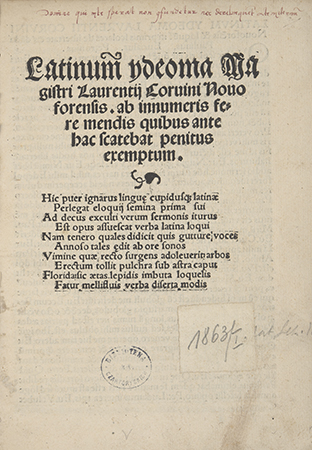 Domine qui in te sperat non
Latinum ydeoma Ma
gistri Laurentij Coruini Nouo
forensis. ab innumeris fe
re mendis quibus ante
hac scatebat penitus
exemptum.
Hic puer ignarus linguę cupidusq; latinæ
Perlegat eloquij semina prima sui
Ad decus exculti verum sermonis iturus
Est opus assuescat verba latina loqui
Nam tenero quales didicit quis gutture voces
Annoso tales edit ab ore sonos
Vimine quæ recto surgens adoleuerit arbos
Erectum tollit pulchra sub astra caput
Florida sic ætas lepidis imbuta loquelis
Fatur mellifluis verba diserta modis
1863
I